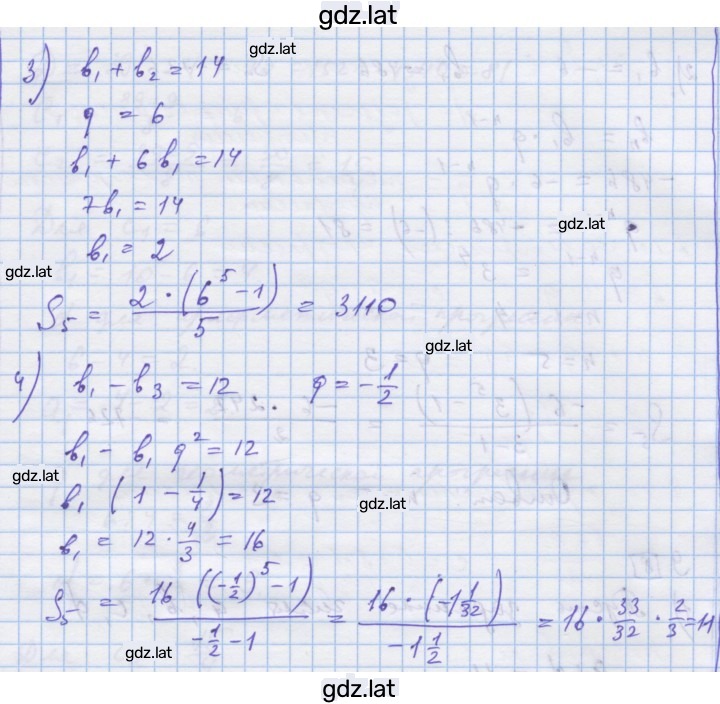 gdz.lat
gdz.lat
3) b₁ + b₂ = 14
q = 6
b₁ + 6b₁ = 14
7b₁ = 14
gdz.lat
b₁ = 2
gdz.lat
S₅ = (2 · (6⁵ − 1)) / 5 = 3110
gdz.lat
4) b₁ − b₃ = 12 q = −1/2
b₁ − b₁ q² = 12
gdz.lat
b₁ (1 − 1/4) = 12
gdz.lat
b₁ = 12 · 4/3 = 16
S₅ = (16 ((−1/2)⁵ − 1)) / (−1/2 − 1) = (16 · (−1 1/32)) / (−1 1/2) = 16 · 33/32 · 2/3 = 11
gdz.lat
gdz.lat